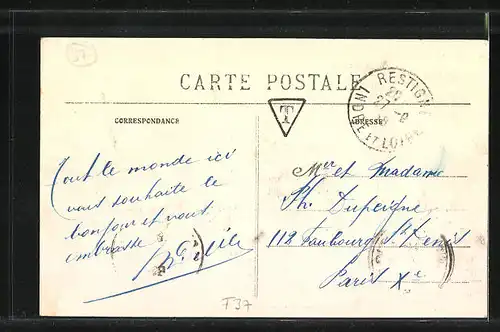 37
CARTE POSTALE
RESTIGNÉ
INDRE ET LOIRE
T
CORRESPONDANCE
ADRESSE
Tout le monde ici
vous souhaite le
bonjour et vous
embrasse
Mr et Madame
Ph. Dupeigne
112 Faubourg St Denis
Paris Xe
F37